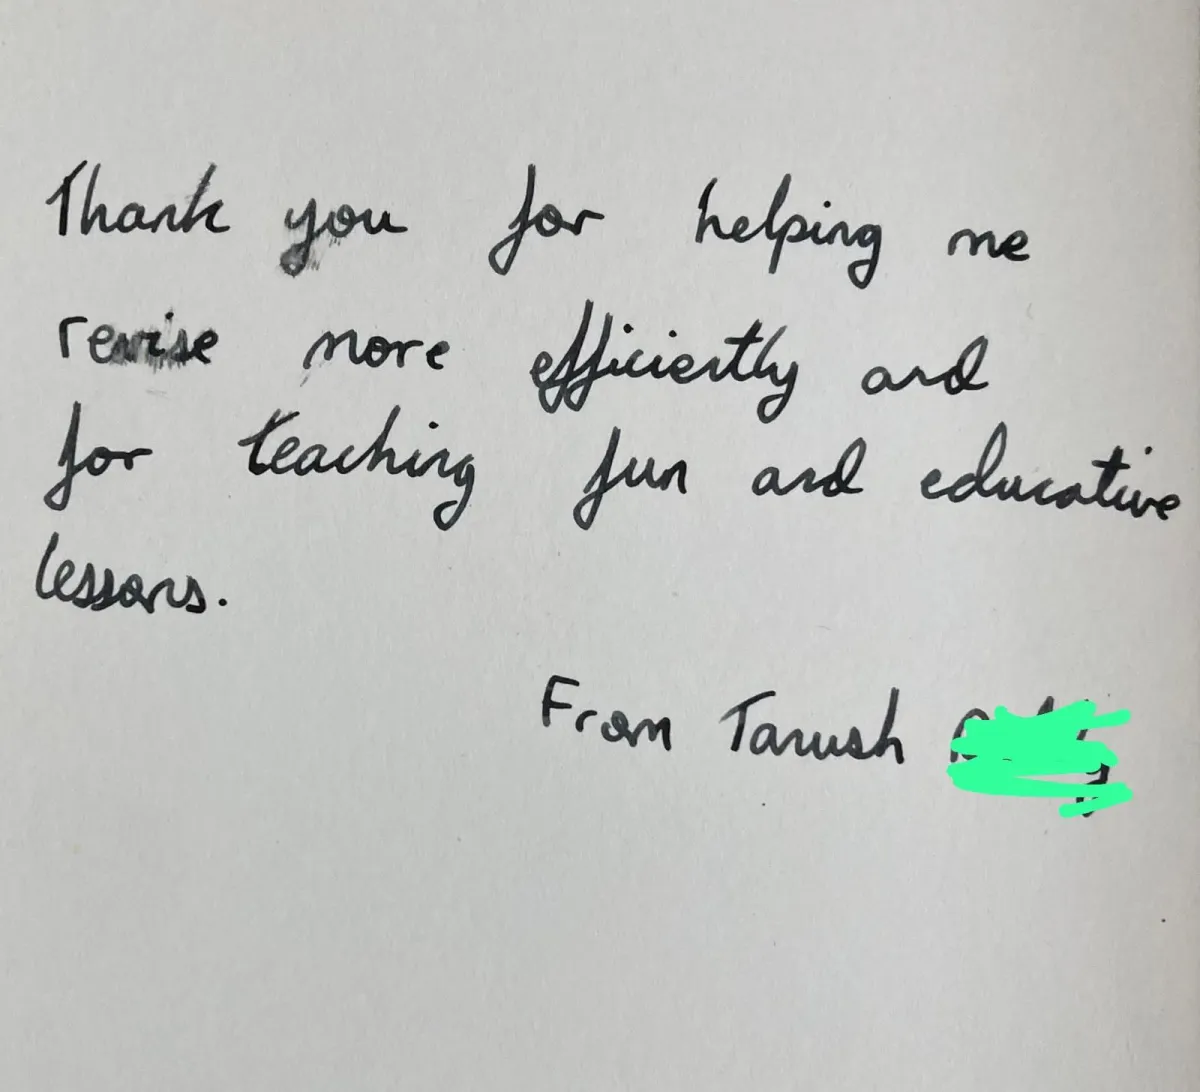 Thank you for helping me
revise more efficiently and
for teaching fun and educative
lessons.
From Tarush